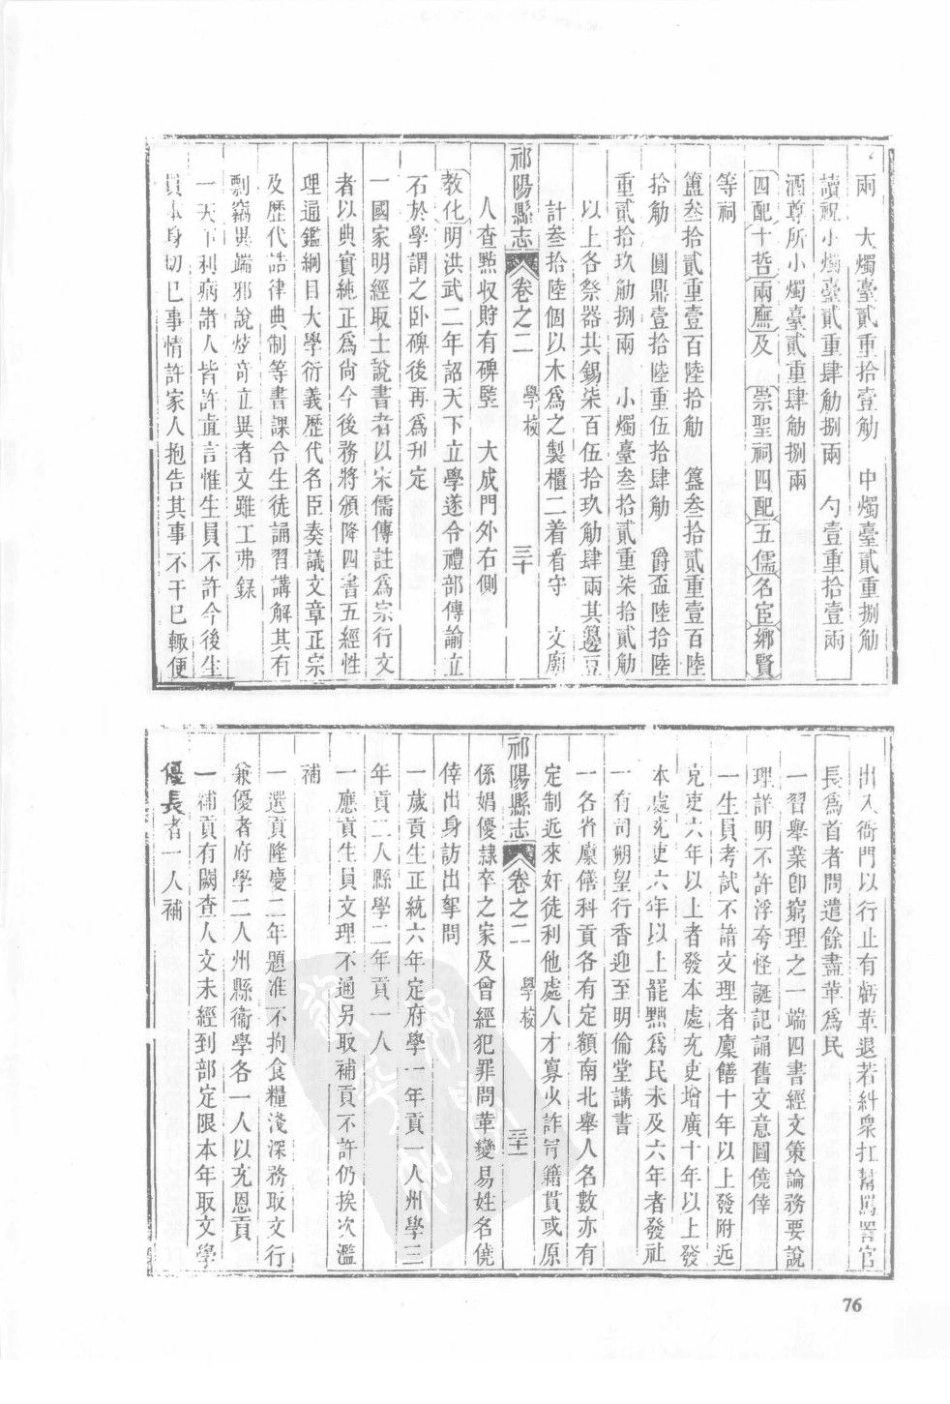 兩　大燭臺貳重拾壹觔　中燭臺貳重捌觔
讀祝小燭臺貳重肆觔捌兩　勺壹重拾壹兩
酒尊所小燭臺貳重肆觔捌兩
四配十哲兩廡及　崇聖祠四配五儒名宦鄉賢
等祠
簠叁拾貳重壹百陸拾觔　簋叁拾貳重壹百陸
拾觔　圓鼎壹拾陸重伍拾肆觔　爵盃陸拾陸
重貳拾玖觔捌兩　小燭臺叁拾貳重柒拾貳觔
以上各祭器共錫柒百伍拾玖觔肆兩其籩豆
計叁拾陸個以木爲之製櫃二着看守　文廟
祁陽縣志　卷之二　學校　三十
人查㸃收貯有碑豎　大成門外右側
教化明洪武二年詔天下立學遂令禮部傳諭立
石於學謂之卧碑後再爲刋定
一國家明經取士說書者以宋儒傳註爲宗行文
者以典實純正爲尚今後務將頒降四書五經性
理通鑑綱目大學衍義歷代名臣奏議文章正宗
及歷代誥律典制等書課令生徒誦習講解其有
剽竊異端邪說炫奇立異者文雖工弗錄
一天下利病諸人皆許直言惟生員不許今後生
員本身切已事情許家人抱告其事不干已輙便
出入衙門以行止有虧革退若糾衆扛幫罵詈官
長爲首者問遣餘盡革爲民
一習舉業卽窮理之一端四書經文策論務要說
理詳明不許浮夸怪誕記誦舊文意圖僥倖
一生員考試不諳文理者廩饍十年以上發附近
充吏六年以上者發本處充吏增廣十年以上發
本處充吏六年以上罷黜爲民未及六年者發社
一有司朔望行香迎至明倫堂講書
一各省廩饍科貢各有定額南北舉人名數亦有
定制近來奸徒利他處人才寡少詐冐籍貫或原
祁陽縣志　卷之二　學校　三十一
係娼優隷卒之家及曾經犯罪問革變易姓名僥
倖出身訪出拏問
一歲貢生正統六年定府學一年貢一人州學三
年貢二人縣學二年貢一人
一應貢生員文理不通另取補貢不許仍挨次濫
補
一選貢隆慶二年題准不拘食糧淺深務取文行
兼優者府學二人州縣衞學各一人以充恩貢
一補貢有闕查人文未經到部定限本年取文學
優長者一人補
76